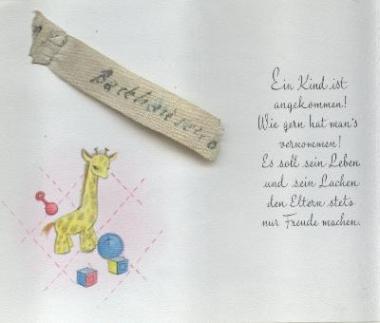 Backhausen
Ein Kind ist
angekommen!
Wie gern hat man's
vernommen!
Es soll sein Leben
und sein Lachen
den Eltern stets
nur Freude machen.